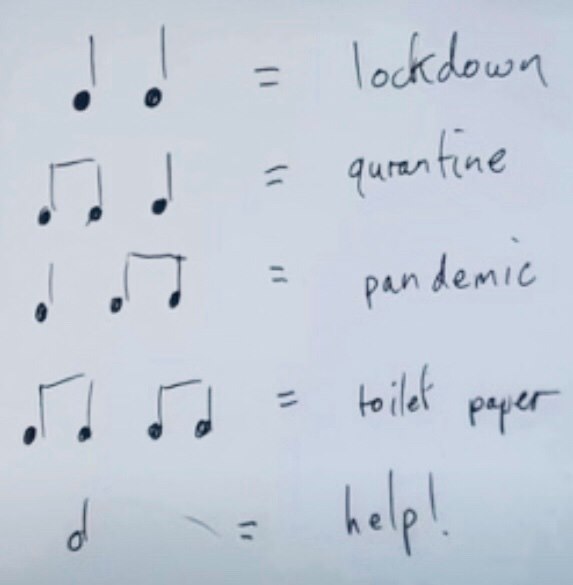 ♩ ♩ = lockdown
♫ ♩ = qurantine
♩ ♫ = pandemic
♫ ♫ = toilet paper
𝅗𝅥 = help!